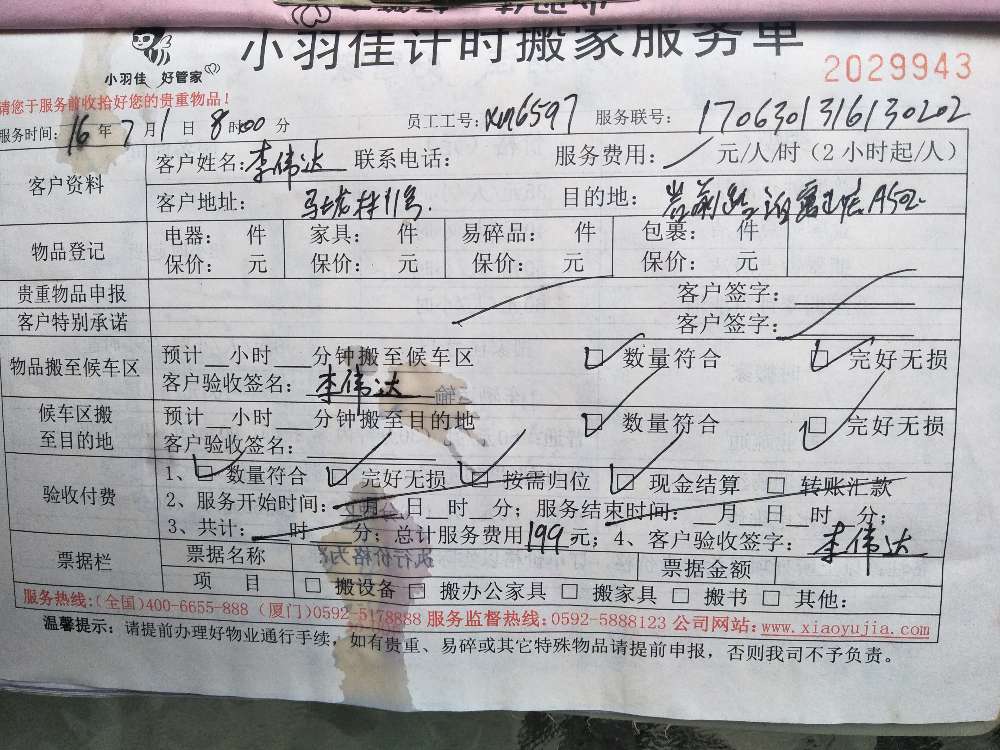 小羽佳计时搬家服务单
小羽佳 好管家
2029943
请您于服务前收拾好您的贵重物品！
服务时间：16年7月1日8时00分 员工工号：xm6597 服务联号：1706301316130202
客户资料
客户姓名：李伟达 联系电话： 服务费用： 元/人/时（2小时起/人）
客户地址：马垅林11号. 目的地：
物品登记
电器： 件 家具： 件 易碎品： 件 包裹： 件
保价： 元 保价： 元 保价： 元 保价： 元
贵重物品申报 客户签字：
客户特别承诺 客户签字：
物品搬至候车区
预计__小时___分钟搬至候车区 数量符合 完好无损
客户验收签名：李伟达
候车区搬至目的地
预计__小时___分钟搬至目的地 数量符合 完好无损
客户验收签名：
验收付费
1、数量符合 完好无损 按需归位 现金结算 转账汇款
2、服务开始时间：__月__日__时__分；服务结束时间：__月__日__时__分；
3、共计：___时___分；总计服务费用199元；4、客户验收签字：李伟达
票据栏
票据名称 票据金额
项 目 搬设备 搬办公家具 搬家具 搬书 其他：
服务热线：(全国)400-6655-888 (厦门)0592-5178888 服务监督热线：0592-5888123 公司网站：www.xiaoyujia.com
温馨提示：请提前办理好物业通行手续，如有贵重、易碎或其它特殊物品请提前申报，否则我司不予负责。